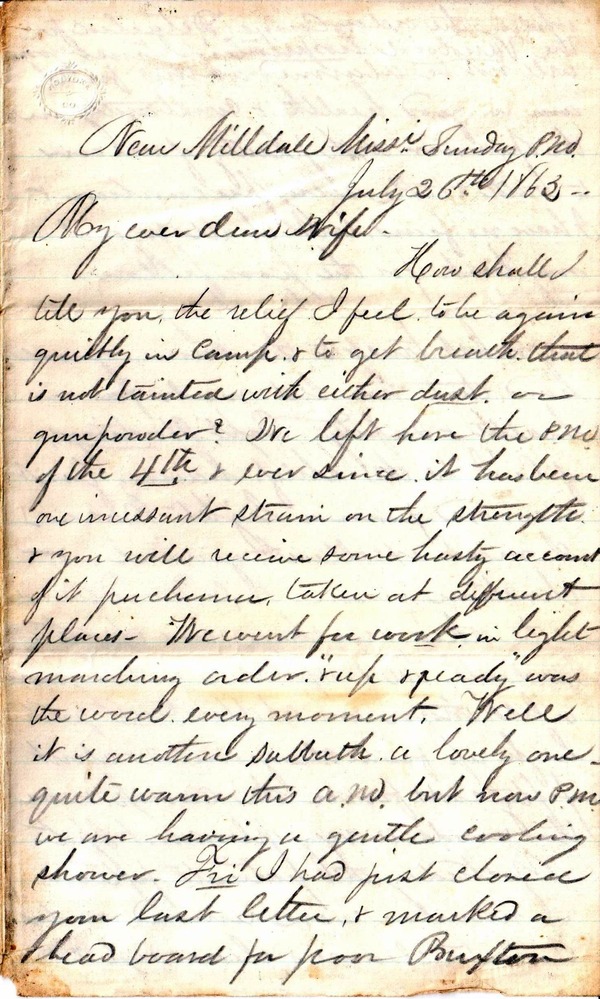 Near Milldale Missi. Sunday P.M.
July 26th 1863 -
My ever dear Wife.
How shall I
tell you, the relief I feel to be again
quietly in Camp. & to get breath. that
is not tainted with either dust. or
gunpowder? We left here the P.M.
of the 4th & ever since it has been
one incessant strain on the strength.
& you will receive some hasty account
of it perchance, taken at different
places - We went for work in light
marching order. "& up & ready" was
the word every moment. Well
it is another Sabbath. a lovely one -
quite warm this a.m. but now P.M.
we are having a gentle cooling
shower. Fri I had just closed
your last letter, & marked a
head board for poor Buxton